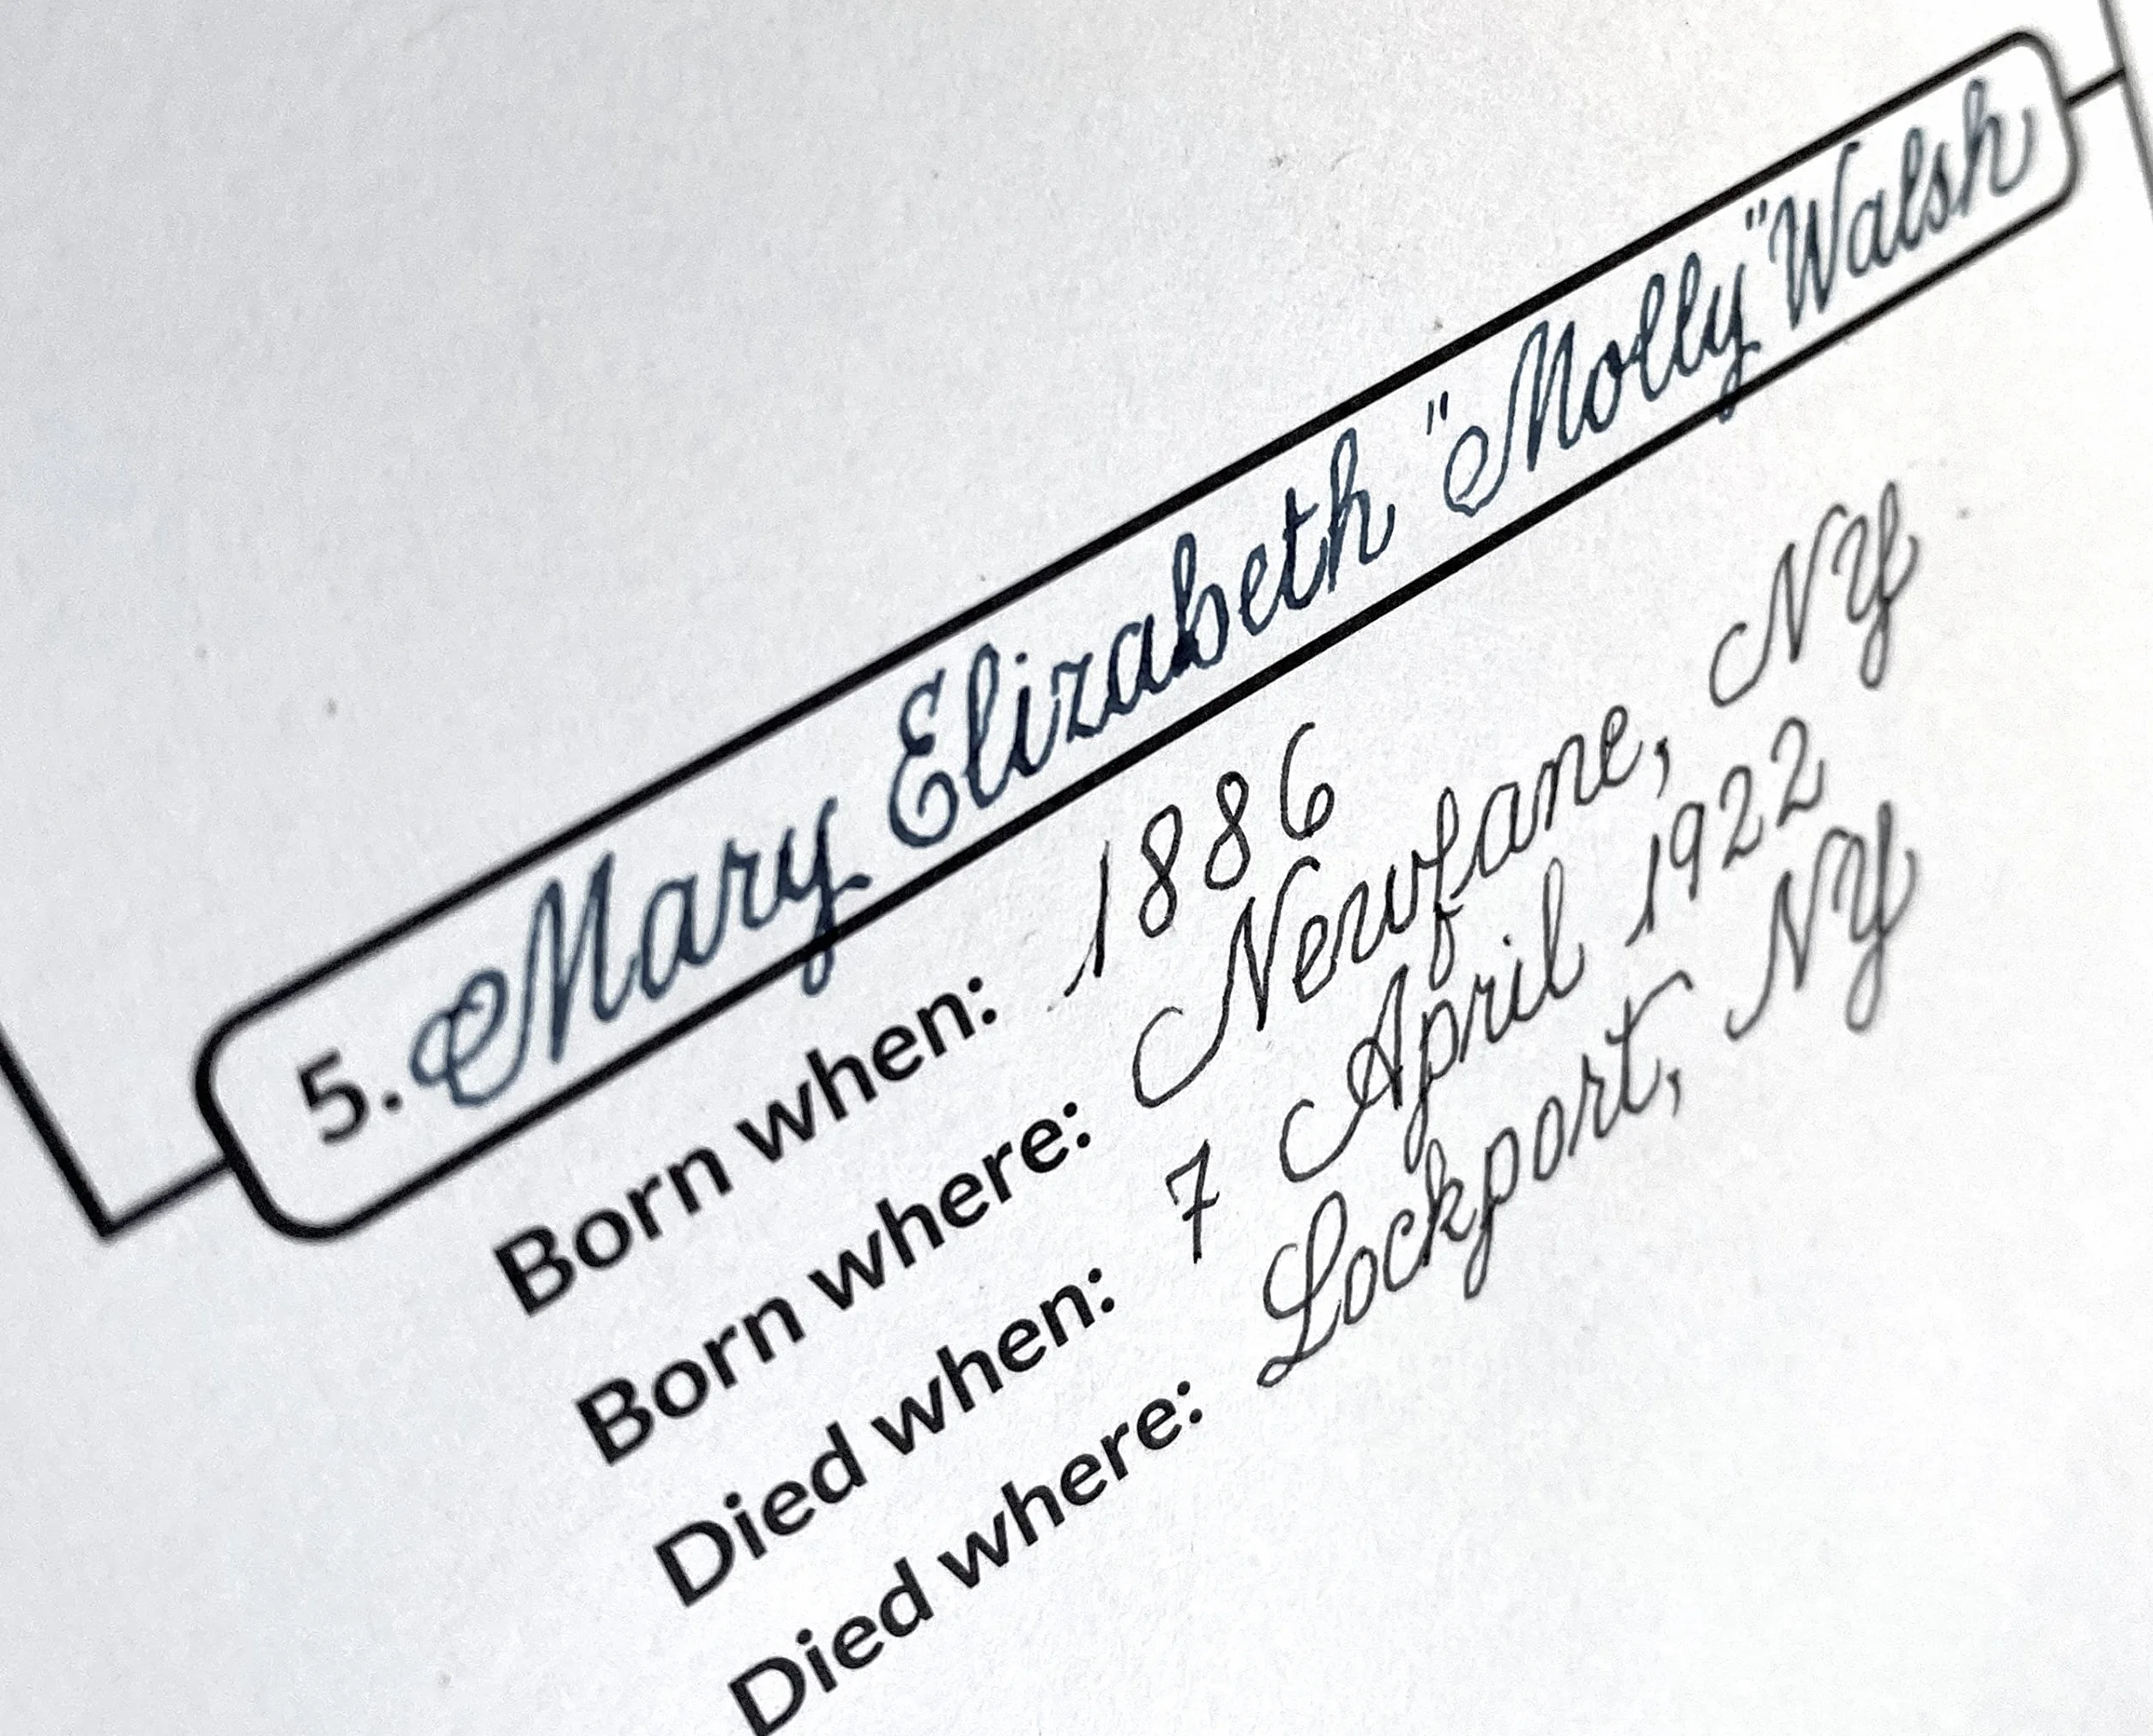 5. Mary Elizabeth "Molly" Walsh
Born when: 1886
Born where: Newfane, NY
Died when: 7 April 1922
Died where: Lockport, NY